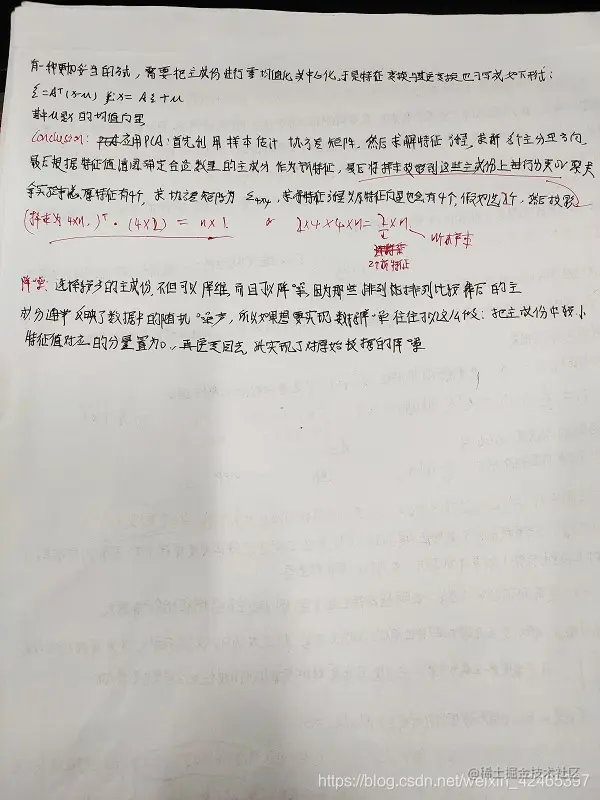 有一种更加妥当的方式,需要把主成份进行零均值化或中心化,于是特征变换与其逆变换也可写成如下形式:
ξ=Aᵀ(x-μ) x=Aξ+μ
其中μ是x的均值向量
Conclusion: 应用PCA:首先利用样本估计协方差矩阵,然后求解特征方程,求解各个主分量方向
最后根据特征值谱图确定合适数量的主成分作为新特征,最后将样本投影到这些主成份上进行分类or聚类
原特征有4个,求协方差矩阵为Σ4×4,求得特征方程以后特征向量也会有4个,假如选2个,然后投影
(样本为4×n)ᵀ·(4×2)=n×2 or 2×4×4×n=2×n
n个样本
2个新特征
降噪:选择较少的主成份,不但可以降维,而且可以降噪,因为那些排列比较靠后的主
成分通常反映了数据中的随机噪声,所以如果想要实现数据降噪往往可以这么做:把主成份中较小
特征值对应的分量置为0,再逆变回去,就实现了对原始数据的降噪
@稀土掘金技术社区
https://blog.csdn.net/weixin_42465397